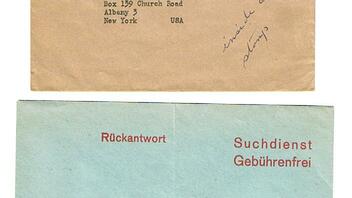 Box 139 Church Road
Albany 3
New York USA
inside a
stamp
Rückantwort
Suchdienst
Gebührenfrei